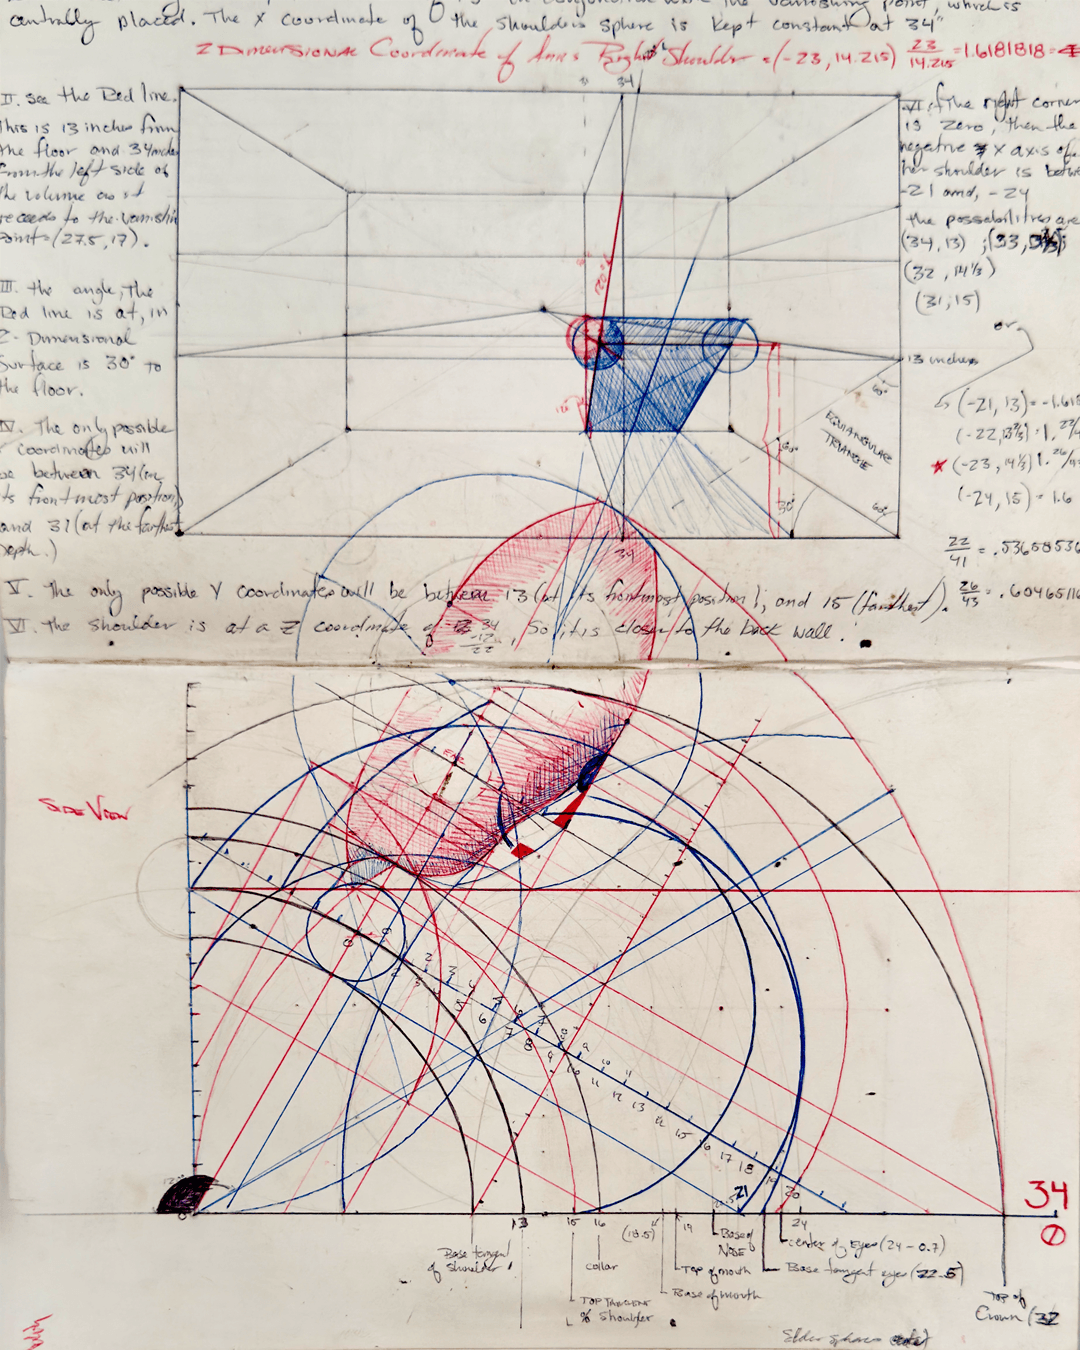 centrally placed. The X coordinate of the shoulder sphere is kept constant at 34"
2 Dimensional Coordinate of Ann's Right Shoulder = (-23, 14.215) 23/14.215 = 1.6181818 =
34
II. See the Red line.
This is 13 inches from
the floor and 34 inches
from the left side of
the volume as it
receeds to the vanishin
point = (27.5, 17).
III. the angle, the
Red line is at, in
2- Dimensional
Surface is 30° to
the floor.
IV. The only possible
coordinates will
be between 34 (in
its frontmost position)
and 31 (at the farthest
Depth.)
VI. If the right corner
is zero, then the
negative X axis of
her shoulder is betwe
-21 and, -24
the possabilitres are
(34, 13) ; (33,
(32, 14⅓)
(31, 15)
or
13 inches
60°
EQUIANGULAR
TRIANGLE
60°
60°
30°
(-21, 13) = -1.615
(-22, 13⅔) = 1.
(-23, 14⅓) 1.
(-24, 15) = 1.6
22/41 = .53658536
26/43 = .60465116
34
V. The only possible Y coordinates will be between 13 (at its frontmost position), and 15 (farthest).
VI. The shoulder is at a Z coordinate of 34
-12
22, So it is closer to the back wall.
SIDE VIEW
EAR
2
3
6
7
8
9
10
11
12
13
15
16
17
18
20
21
34
0
13
15
16
(18.5)
19
24
Base tangent
of shoulder
collar
TOP TANGENT
% Shoulder
Base of
NOSE
Top of mouth
Base of mouth
center of Eyes (24 - 0.7)
Base tangent eyes (22.5)
Top of
Crown (32
Elder sphere